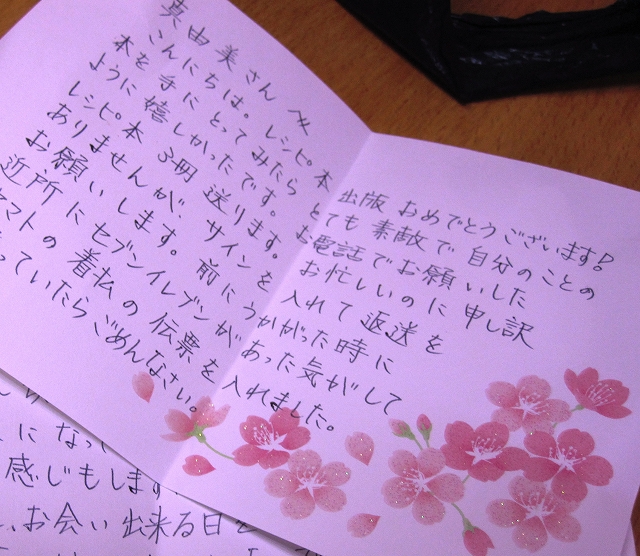 真由美さんへ
こんにちは。レシピ本出版おめでとうございます!
本を手にとってみたらとても素敵で自分のことの
ように嬉しかったです。お電話でお願いした
レシピ本3冊送ります。お忙しいのに申し訳
ありませんが、サインを入れて返送を
お願いします。前にうかがった時に
近所にセブンイレブンがあった気がして
ヤマトの着払の伝票を入れました。
っていたらごめんなさい。
になっ
感じもします
お会い出来る日を